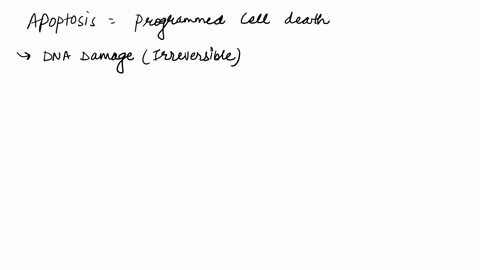 Apoptosis = Programmed cell death
→ DNA Damage (Irreversible)